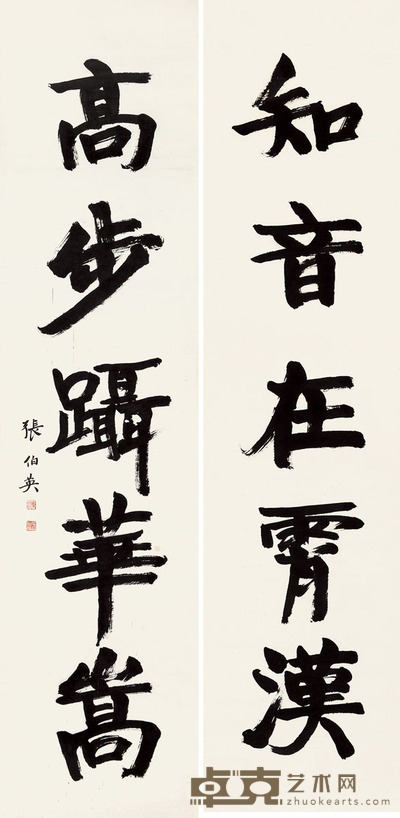 知音在霄漢
高步躡華嵩
張伯英
卓克艺术网
zhuokearts.com